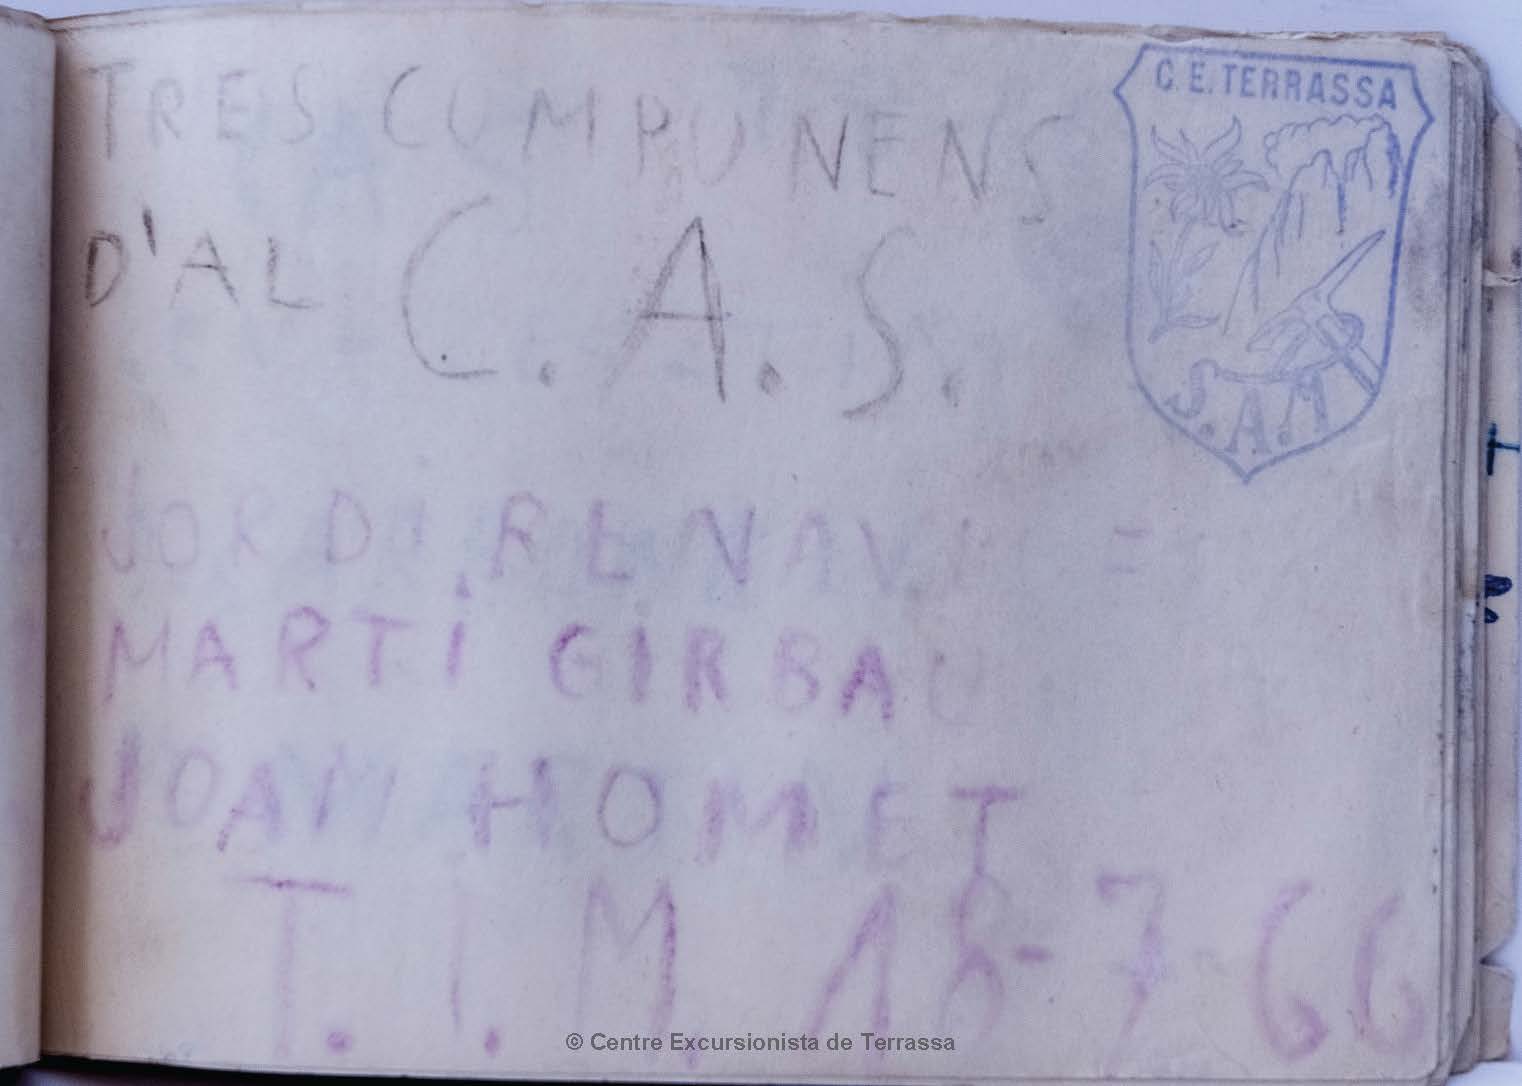 TRES COMPONENS
C. E. TERRASSA
D'AL C.A.S.
S.A.M
JORDI
MARTÍ GIRBAU
JOAN HOMET
T.I.M 18-7-66
© Centre Excursionista de Terrassa